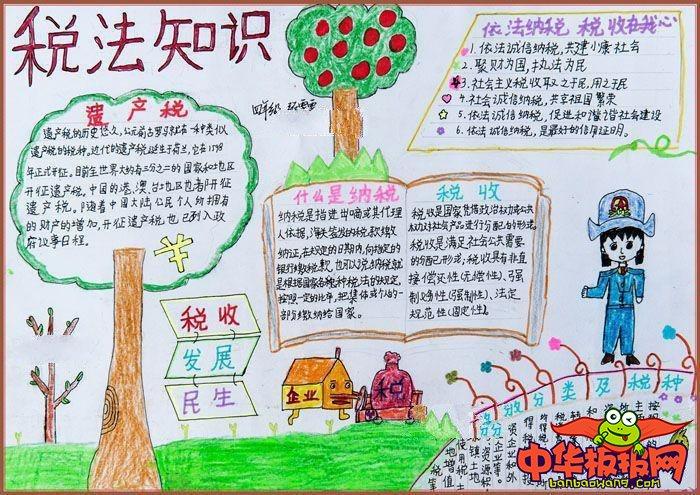 税法知识
依法纳税 税收在我心
1.依法诚信纳税,共建小康社会
2.聚财为国,执法为民
3.社会主义税收取之于民,用之于民
4.社会诚信纳税,共享祖国繁荣
5.依法诚信纳税,促进和谐社会建设
6.依法诚信纳税,是最好的信用证明。
遗产税
遗产税的历史悠久,公元前古罗马就有一种类似
遗产税的税种。近代的遗产税诞生于荷兰,它在1598
年正式开征。目前全世界大约有三分之二的国家和地区
开征遗产税。中国的港、澳、台地区也者开征
遗产税。随着中国大陆公民个人的拥有
的财产的增加,开征遗产税也已列入政
府议事日程。
什么是纳税
纳税是指进出口商或其代理
人依据,海关签发的税款缴
纳证,在规定的日期内,向指定的
银行缴纳税款,也可以说纳税就
是根据国家各种税法的规定,
按照一定的比率,把集体或个人的一
部分缴纳给国家。
税收
税收是国家凭借政治权力或公共
权力对社会产品进行分配的形式。
税收是满足社会公共需要
的分配形式;税收具有非直
接偿还性(无偿性)、强
制义务性(强制性)、法定
规范性(固定性)。
税收
发展
民生
企业
税
税收分类及税种
中华板报网
banbaowang.com